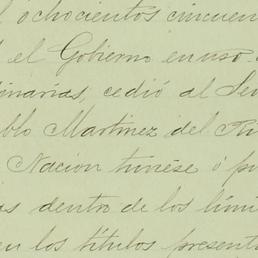 l ochocientos cincuen
l el Gobierno en uso
inarias, cedió al Se
blo Martinez del Ri
Nacion tuviese ó pu
as dentro de los lími
en los títulos present